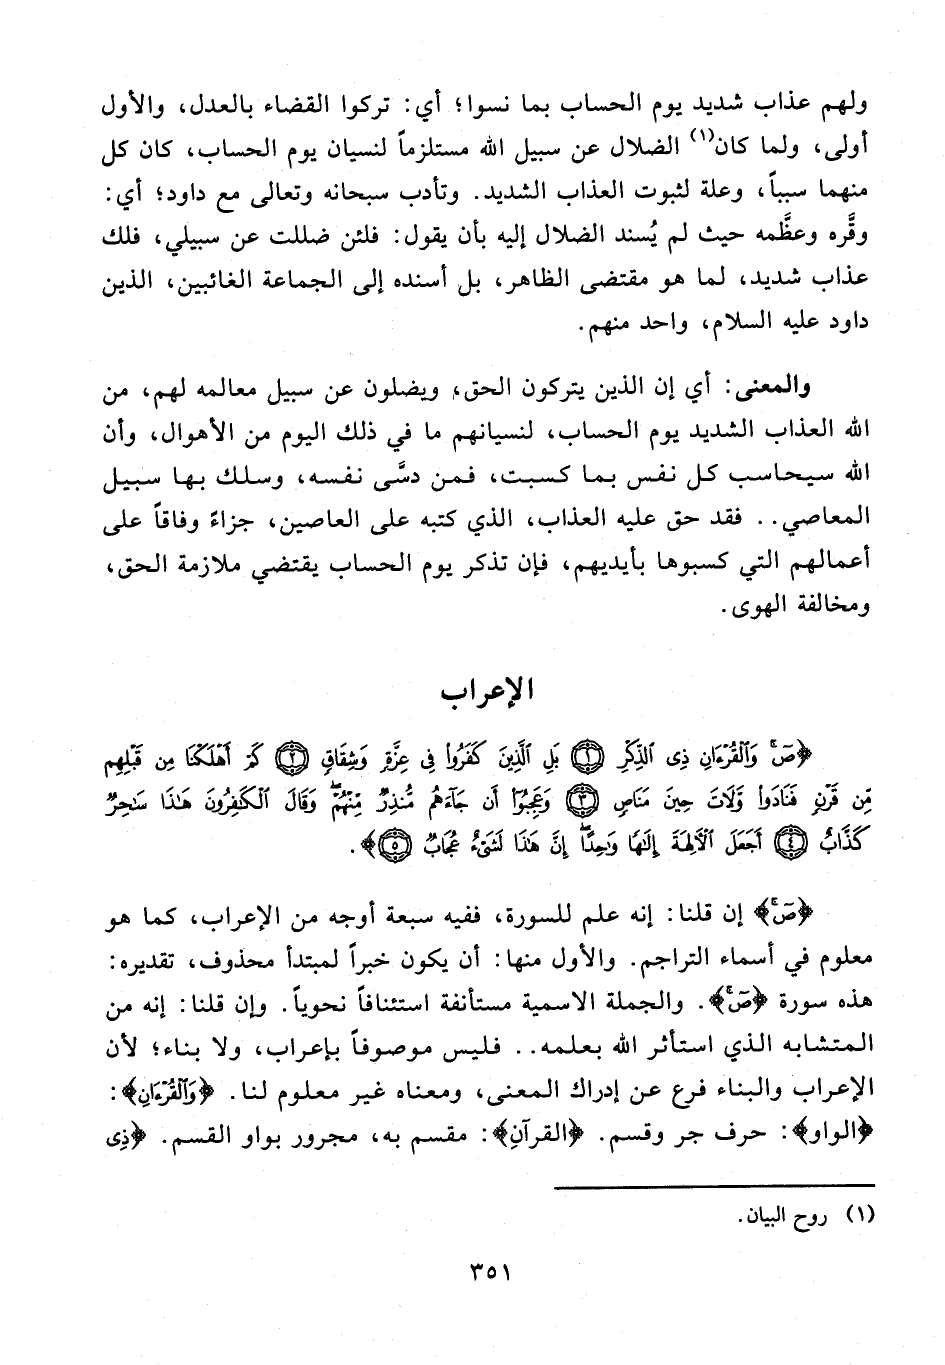 ولهم عذاب شديد يوم الحساب بما نسوا؛ أي: تركوا القضاء بالعدل، والأول
أولى، ولما كان(١) الضلال عن سبيل الله مستلزماً لنسيان يوم الحساب، كان كل
منهما سبباً، وعلة لثبوت العذاب الشديد. وتأدب سبحانه وتعالى مع داود؛ أي:
وقَّره وعظَّمه حيث لم يُسند الضلال إليه بأن يقول: فلئن ضللت عن سبيلي، فلك
عذاب شديد، لما هو مقتضى الظاهر، بل أسنده إلى الجماعة الغائبين، الذين
داود عليه السلام، واحد منهم.
والمعنى: أي إن الذين يتركون الحق، ويضلون عن سبيل معالمه لهم، من
الله العذاب الشديد يوم الحساب، لنسيانهم ما في ذلك اليوم من الأهوال، وأن
الله سيحاسب كل نفس بما كسبت، فمن دسَّى نفسه، وسلك بها سبيل
المعاصي.. فقد حق عليه العذاب، الذي كتبه على العاصين، جزاءً وفاقاً على
أعمالهم التي كسبوها بأيديهم، فإن تذكر يوم الحساب يقتضي ملازمة الحق،
ومخالفة الهوى.
الإعراب
﴿صٓۚ وَٱلْقُرْءَانِ ذِى ٱلذِّكْرِ ١ بَلِ ٱلَّذِينَ كَفَرُوا۟ فِى عِزَّةٍ وَشِقَاقٍ ٢ كَمْ أَهْلَكْنَا مِن قَبْلِهِم
مِّن قَرْنٍ فَنَادَوا۟ وَّلَاتَ حِينَ مَنَاصٍ ٣ وَعَجِبُوٓا۟ أَن جَآءَهُم مُّنذِرٌ مِّنْهُمْۖ وَقَالَ ٱلْكَٰفِرُونَ هَٰذَا سَٰحِرٌ
كَذَّابٌ ٤ أَجَعَلَ ٱلْءَالِهَةَ إِلَٰهًا وَٰحِدًاۖ إِنَّ هَٰذَا لَشَىْءٌ عُجَابٌ ٥﴾.
﴿صٓۚ﴾ إن قلنا: إنه علم للسورة، ففيه سبعة أوجه من الإعراب، كما هو
معلوم في أسماء التراجم. والأول منها: أن يكون خبراً لمبتدأ محذوف، تقديره:
هذه سورة ﴿صٓۚ﴾. والجملة الاسمية مستأنفة استئنافاً نحوياً. وإن قلنا: إنه من
المتشابه الذي استأثر الله بعلمه.. فليس موصوفاً بإعراب، ولا بناء؛ لأن
الإعراب والبناء فرع عن إدراك المعنى، ومعناه غير معلوم لنا. ﴿وَٱلْقُرْءَانِ﴾:
﴿الواو﴾: حرف جر وقسم. ﴿القرآنِ﴾: مقسم به، مجرور بواو القسم. ﴿ذِى
(١) روح البيان.
٣٥١